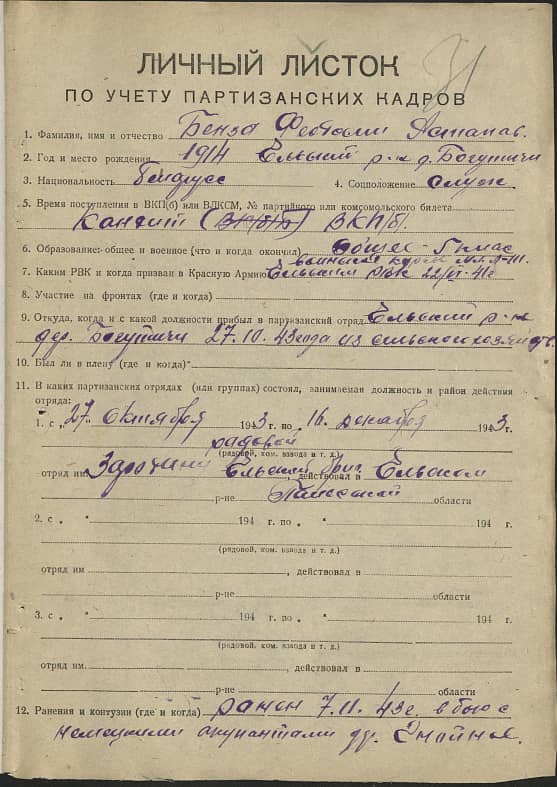 31
ЛИЧНЫЙ ЛИСТОК
ПО УЧЕТУ ПАРТИЗАНСКИХ КАДРОВ
1. Фамилия, имя и отчество Бенза
2. Год и место рождения 1914 Ельский р-н д. Богутичи
3. Национальность 4. Соцположение служ
5. Время поступления в ВКП(б) или ВЛКСМ, № партийного или комсомольского билета
ВКП/б/.
6. Образование: общее и военное (что и когда окончил) общее - 5 клас
7. Каким РВК и когда призван в Красную Армию Ельским РВК 22/VI-41г
8. Участие на фронтах (где и когда)
9. Откуда, когда и с какой должности прибыл в партизанский отряд Ельский р-н
дер. Богутичи 27.10.43 года из
10. Был ли в плену (где и когда)
11. В каких партизанских отрядах (или группах) состоял, занимаемая должность и район действия
отряда:
1. с „27 октября 1943 г. по „16„ декабря 1943 г.
рядовой
(рядовой, ком. взвода и т. д.)
отряд им Ельской бриг, действовал в Ельском
р-не области
2. с „ “ 194 г. по „ “ 194 г.
(рядовой, ком. взвода и т. д.)
отряд им , действовал в
р-не области
3. с „ “ 194 г. по „ “ 194 г.
(рядовой, ком. взвода и т. д.)
отряд им , действовал в
р-не области
12. Ранения и контузии (где и когда) ранен 7.11.43г. в бою с
немецкими окупантами др.